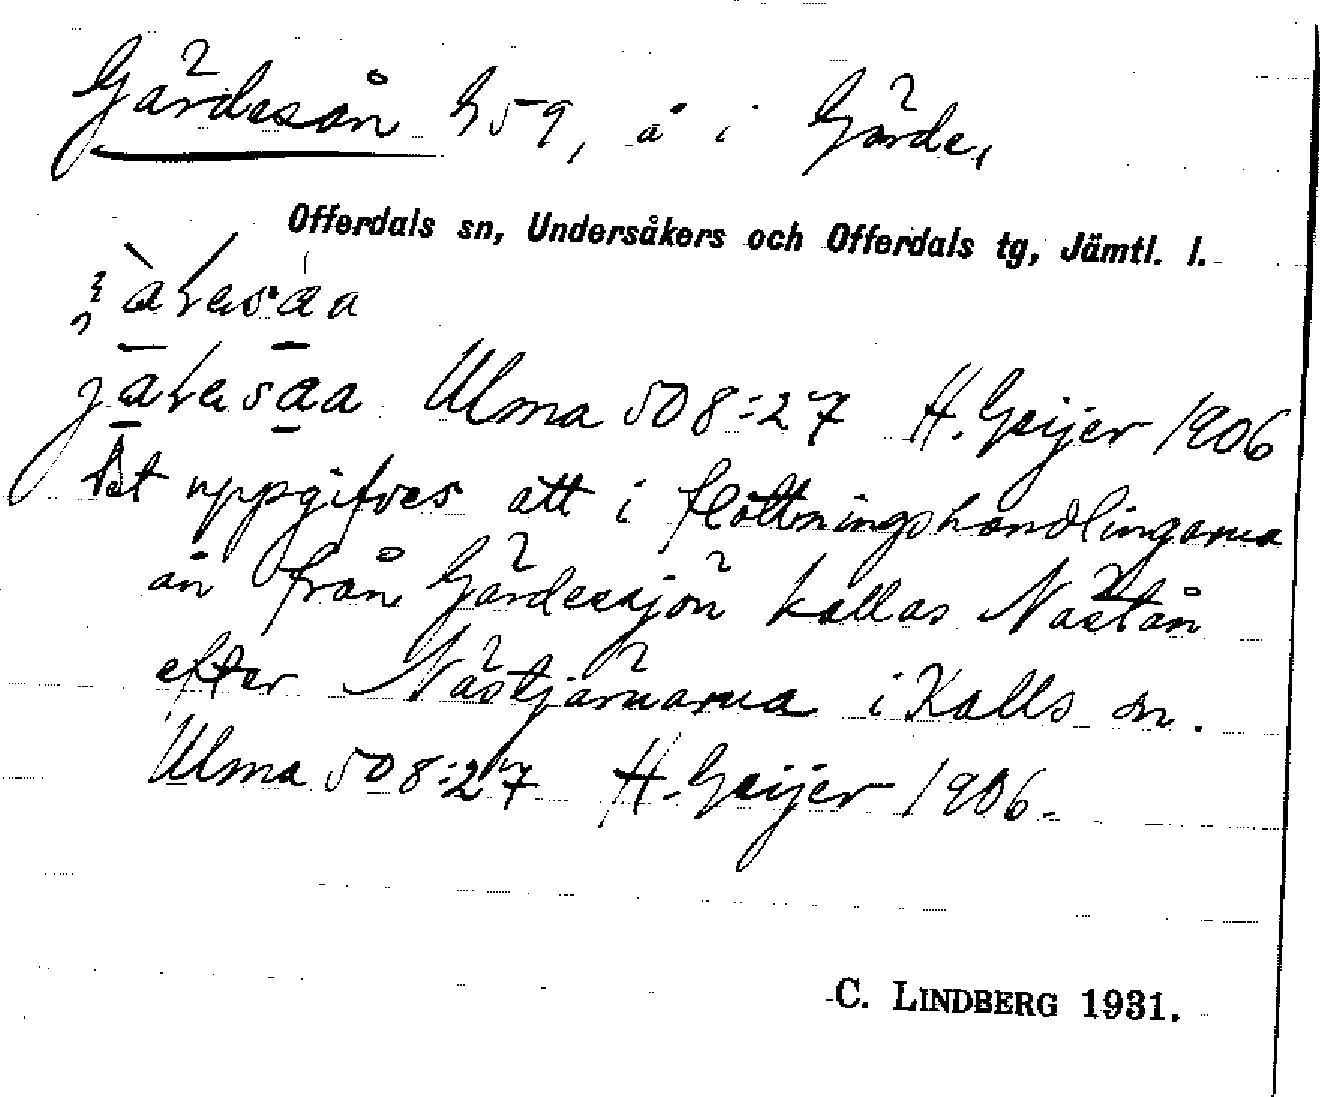 Gärdesån h59, å i Gärde,
Offerdals sn, Undersåkers och Offerdals tg, Jämtl. l.
Ulma 508:27 H. Geijer 1906
Det uppgifves att i flottningshandlingarna
ån från Gärdessjön kallas Nästån
efter Nästjärnarna i Kalls sn.
Ulma 508:27 H. Geijer 1906.
C. LINDBERG 1931.